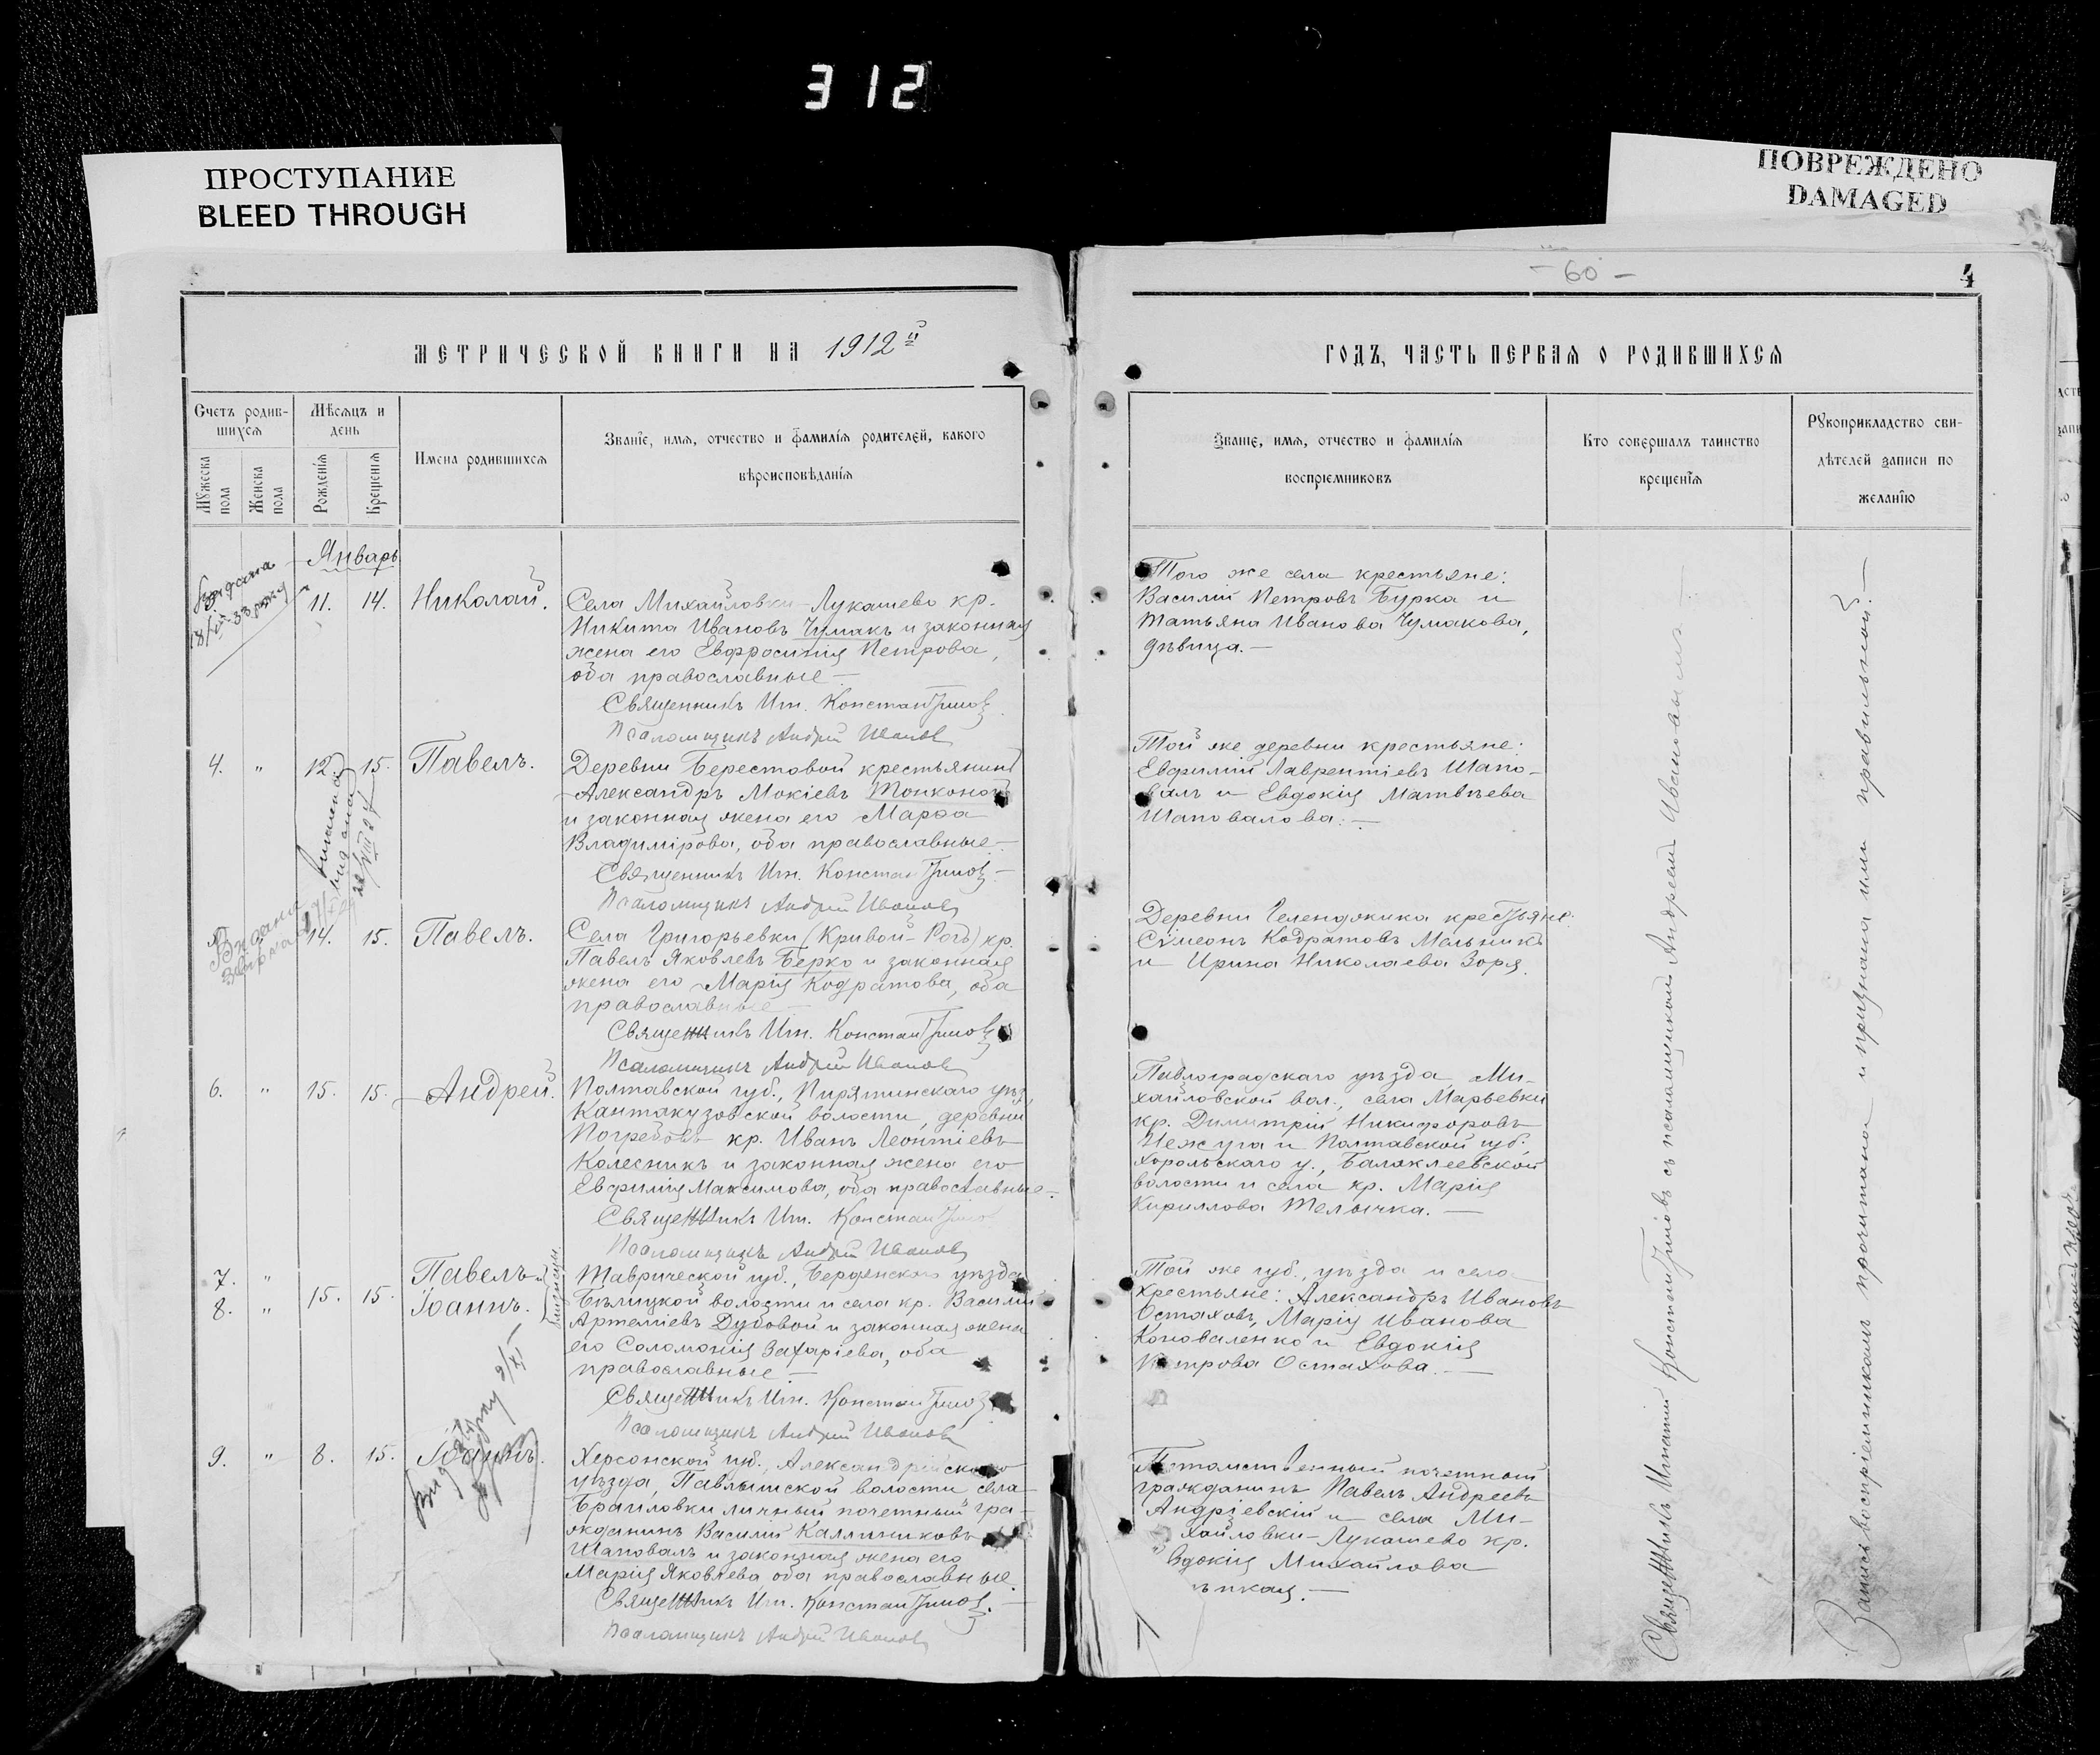 312
ПРОСТУПАНИЕ
BLEED THROUGH
ПОВРЕЖДЕНО
DAMAGED
- 60 -
4
МЕТРИЧЕСКОЙ КНИГИ НА 1912й
ГОДЪ, ЧАСТЬ ПЕРВАЯ О РОДИВШИХСЯ
Счетъ родив-
шихся
Мужеска пола
Женска пола
Мѣсяцъ и
день
Рожденія
Крещенія
Имена родившихся
Званіе, имя, отчество и фамилія родителей, какого
вѣроисповѣданія
Званіе, имя, отчество и фамилія
воспріемниковъ
Кто совершалъ таинство
крещенія
Рукоприкладство сви-
дѣтелей записи по
желанію
Январь
11. 14. Николай.
Села Михайловки-Лукашево кр.
Никита Ивановъ Чумакъ и законная
жена его Евфросинія Петрова,
оба православные —
Священникъ Игн. Константиновъ
Псаломщикъ Андрей Ивановъ
Того же села крестьяне:
Василій Петровъ Бурка и
Татьяна Иванова Чумакова,
дѣвица. —
4. " 12 15. Павелъ.
Деревни Берестовой крестьянинъ
Александръ Мокіевъ Тонконогъ
и законная жена его Марѳа
Владимірова, оба православные. —
Священникъ Игн. Константиновъ —
Псаломщикъ Андрей Ивановъ
Той же деревни крестьяне:
Евфимій Лаврентіевъ Шапо-
валъ и Евдокія Матвѣева
Шаповалова. —
14. 15. Павелъ.
Села Григорьевки (Кривой-Рогъ) кр.
Павелъ Яковлевъ Берко и законная
жена его Марія Кодратова, оба
православные —
Священникъ Игн. Константиновъ
Псаломщикъ Андрей Ивановъ
Деревни Геленджика крестьяне:
Сѵмеонъ Кодратовъ Мельникъ
и Ирина Николаева Зоря.
6. " 15. 15. Андрей.
Полтавской губ., Пирятинскаго уѣз,
Кантакузовской волости, деревни
Погребовъ кр. Иванъ Леонтіевъ
Колесникъ и законная жена его
Евфимія Максимова, оба православные. —
Священникъ Игн. Константинов
Псаломщикъ Андрей Ивановъ
Павлоградскаго уѣзда, Ми-
хайловской вол., села Марьевки
кр. Димитрій Никифоровъ
и Полтавской губ.,
Хорольскаго у., Балаклеевской
волости и села кр. Марія
Кириллова Теличка. —
7. "
8. "
15. 15.
Павелъ и
Іоаннъ.
близнецы
Таврической губ., Бердянскаго уѣзда
Бѣлицкой волости и села кр. Василій
Артеміевъ Дубовой и законная жена
его Соломонія Захаріева, оба
православные —
Священникъ Игн. Константиновъ
Псаломщикъ Андрей Ивановъ
Той же губ., уѣзда и села
крестьяне: Александръ Ивановъ
Остаховъ, Марія Иванова
Коноваленко и Евдокія
Петрова Остахова. —
9. " 8. 15. Іоаннъ.
Херсонской губ., Александрійскаго
уѣзда, Павлышской волости села
Браиловки личный почетный гра-
жданинъ Василій Каллиниковъ
Шаповалъ и законная жена его
Марія Яковлева оба православные.
Священникъ Игн. Константиновъ. —
Псаломщикъ Андрей Ивановъ
Потомственный почетный
гражданинъ Павелъ Андреевъ
Андріевскій и села Ми-
хайловки-Лукашево кр.
вдокія Михайлова
Священникъ Игнатій Константиновъ съ псаломщикомъ Андреемъ Ивановымъ —
Запись воспріемникамъ прочитана и признана ими правильной. —